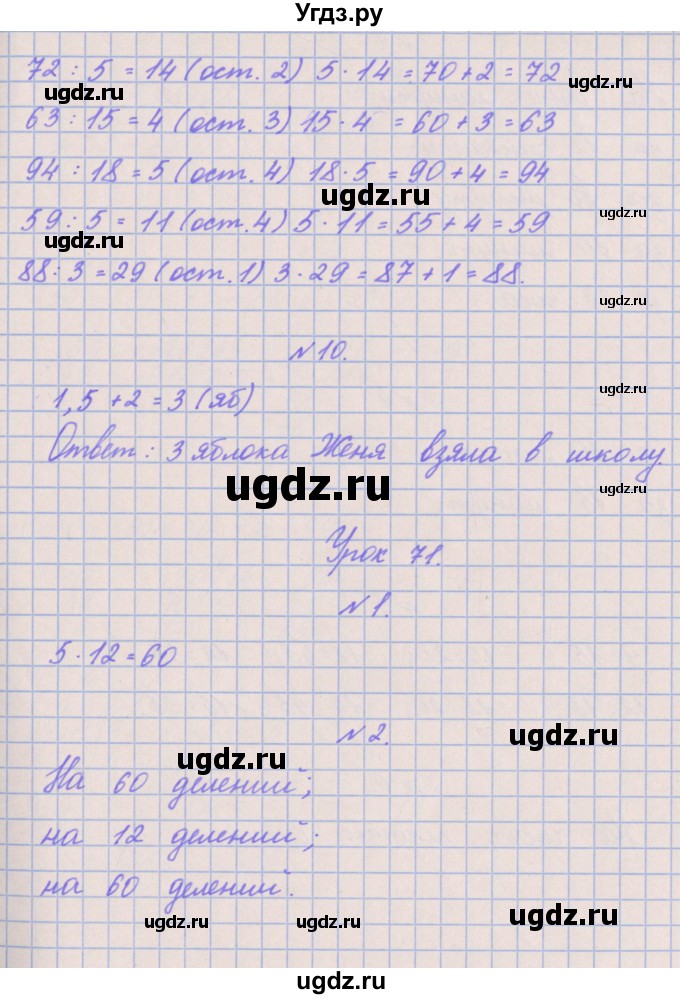 Угдз.ру
72 : 5 = 14 (ост. 2) 5 · 14 = 70 + 2 = 72
ugdz.ru ugdz.ru
63 : 15 = 4 (ост. 3) 15 · 4 = 60 + 3 = 63
94 : 18 = 5 (ост. 4) 18 · 5 = 90 + 4 = 94
ugdz.ru ugdz.ru
59 : 5 = 11 (ост. 4) 5 · 11 = 55 + 4 = 59
ugdz.ru
88 : 3 = 29 (ост. 1) 3 · 29 = 87 + 1 = 88.
ugdz.ru
№ 10.
ugdz.ru
1,5 + 2 = 3 (яб)
Ответ: 3 яблока Женя взяла в школу.
ugdz.ru ugdz.ru
Урок 71.
№ 1.
ugdz.ru
5 · 12 = 60
№ 2.
ugdz.ru ugdz.ru
На 60 делений;
на 12 делений;
на 60 делений.
ugdz.ru ugdz.ru ugdz.ru
ugdz.ru